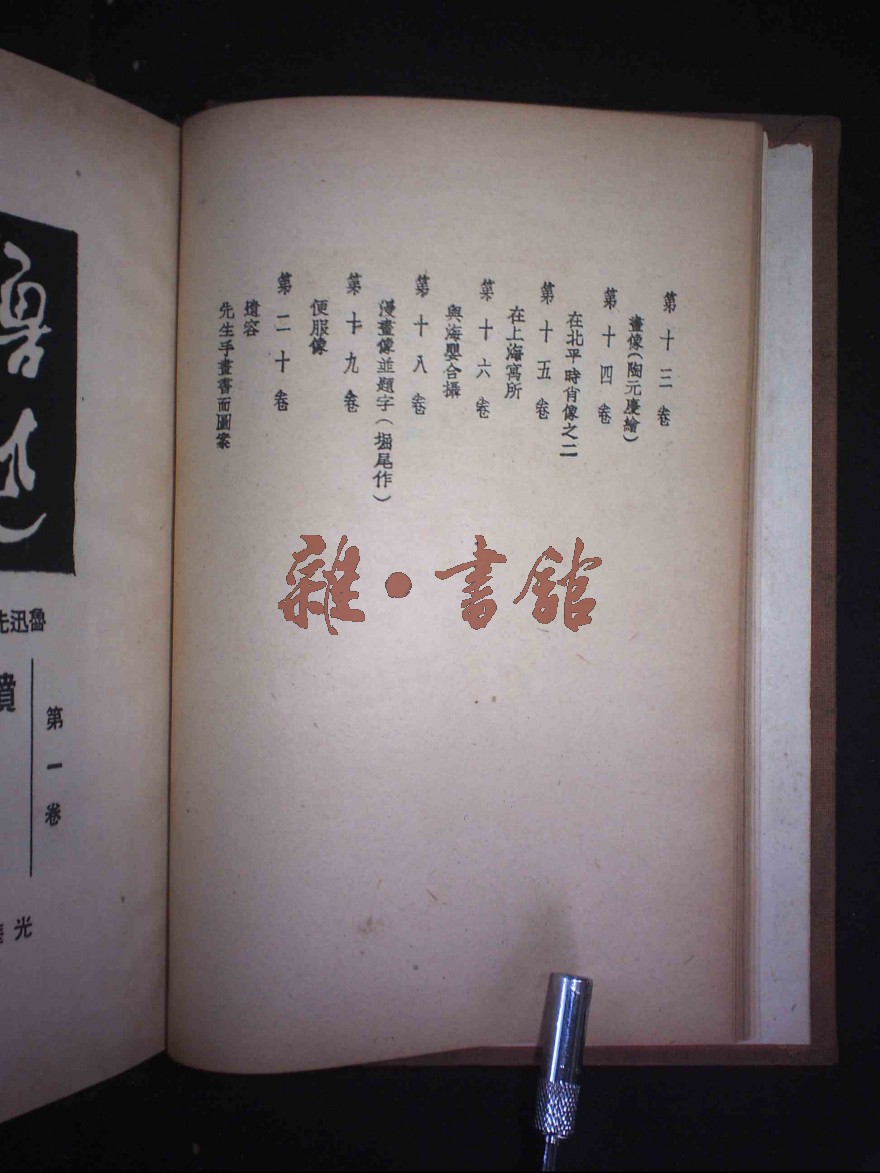 第十三卷
畫像(陶元慶繪)
第十四卷
在北平時肖像之二
第十五卷
在上海寓所
第十六卷
與海嬰合攝
第十八卷
漫畫像並題字(堀尾作)
第十九卷
便服像
第二十卷
遺容
先生手畫書面圖案
雜·書館
魯迅先
第一卷
墳
光